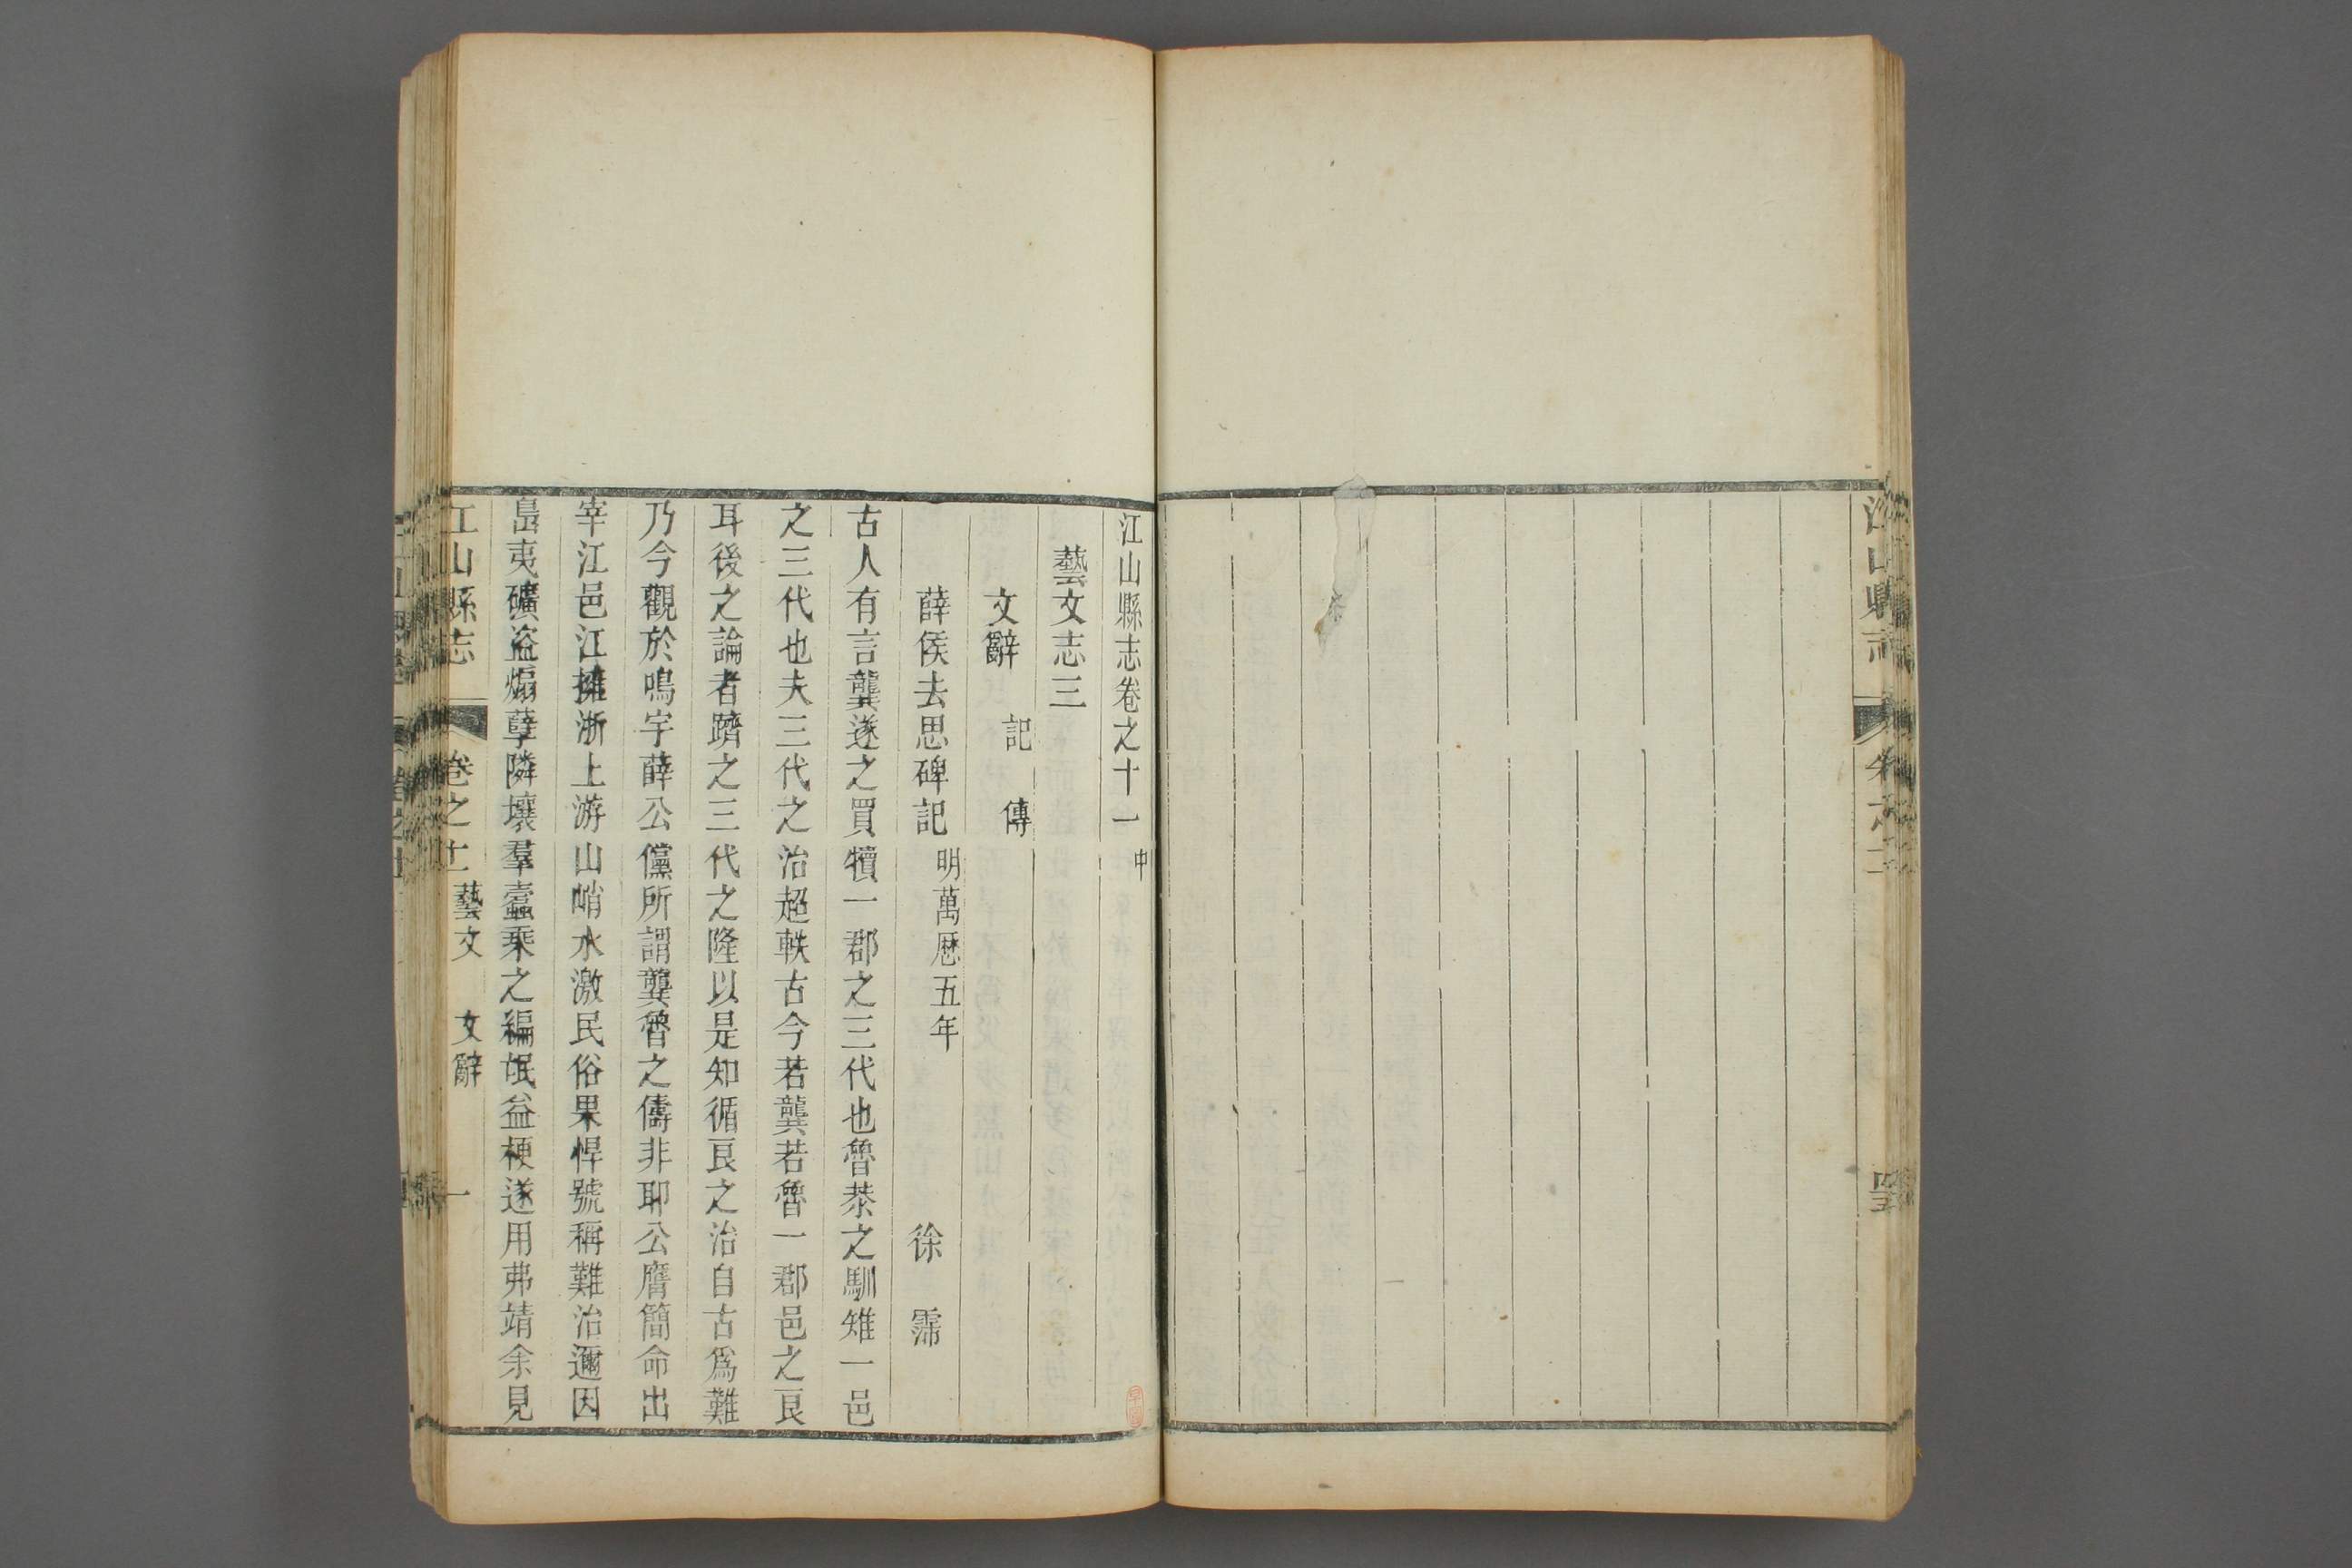 江山縣志卷之十一中
藝文志三
文辭 記 傳
薛侯去思碑記 明萬厯五年 徐霈
古人有言龔遂之買犢一郡之三代也魯恭之馴雉一邑
之三代也夫三代之治超軼古今若龔若魯一郡邑之良
耳後之論者躋之三代之隆以是知循良之治自古爲難
乃今觀於鳴宇薛公儻所謂龔魯之儔非耶公膺簡命出
宰江邑江擁浙上游山峭水激民俗果悍號稱難治邇因
島夷礦盗煽孽隣壤羣蠹乘之編氓益梗遂用弗靖余見
江山縣志 卷之十一 藝文 文辭 一